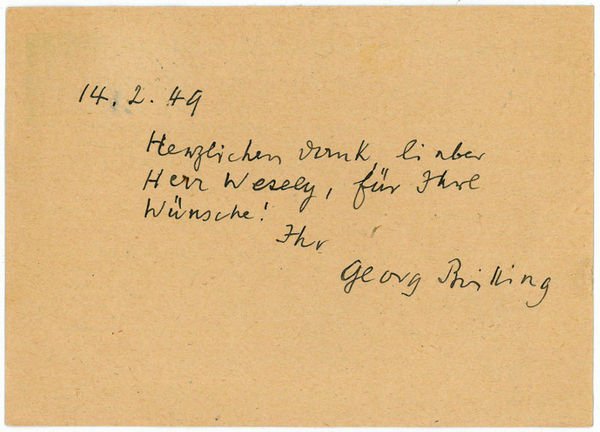 14. 2. 49
Herzlichen Dank, lieber
Herr Wesely, für Ihre
Wünsche!
Ihr
Georg Britting